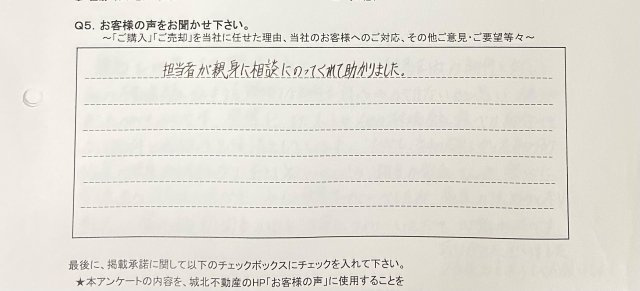 Q5. お客様の声をお聞かせ下さい。
～「ご購入」「ご売却」を当社に任せた理由、当社のお客様へのご対応、その他ご意見・ご要望等々～
担当者が親身に相談にのってくれて助かりました。
最後に、掲載承諾に関して以下のチェックボックスにチェックを入れて下さい。
★本アンケートの内容を、城北不動産のHP「お客様の声」に使用することを